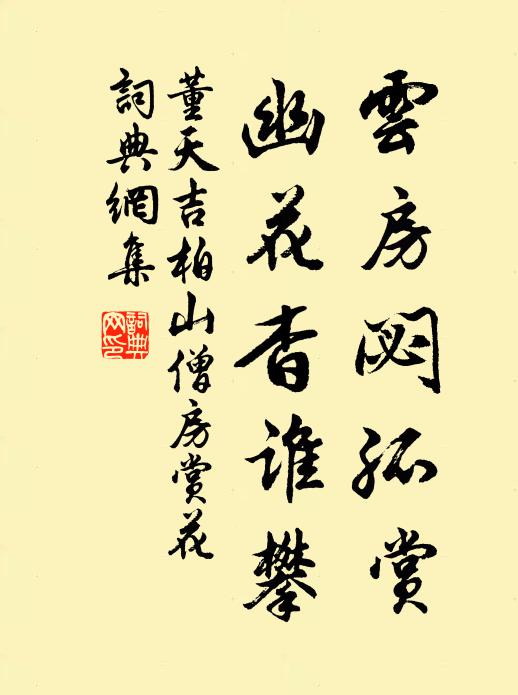 雲房閟孤賞
幽花杳誰攀
董天吉柏山僧房賞花
詞典網集
詞典
网印